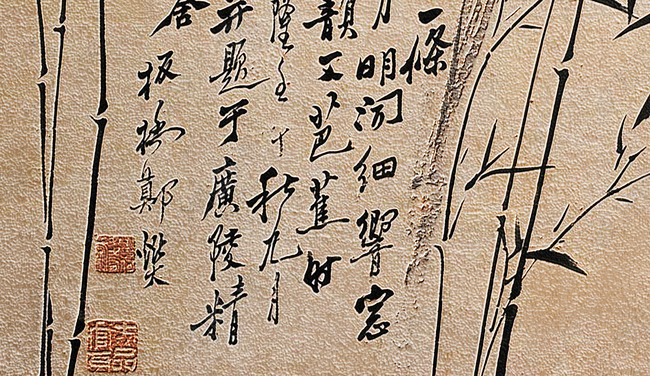 一條
月明細響窓
韻不芭蕉时
隆壬午秋九月
并題于廣陵精
舍
板橋鄭燮